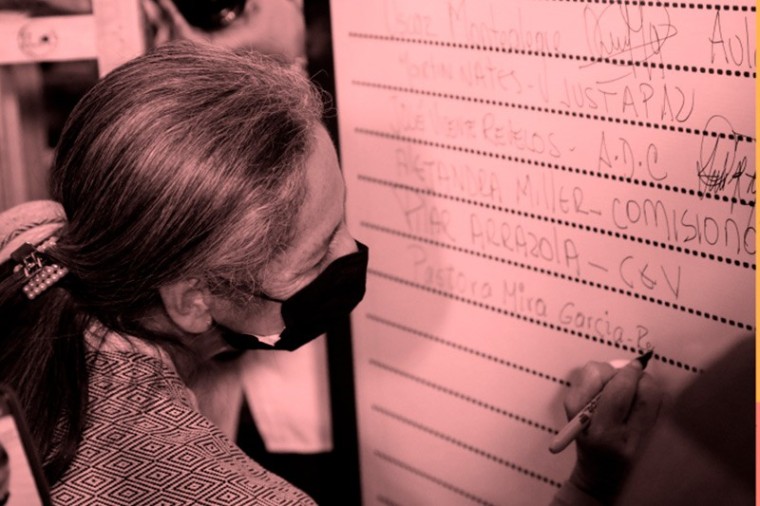 Monteolegre Aul
MARTIN NATES - V JUSTAPAZ
JOSE VICENTE REVELOS - A.D.C
ALEJANDRA MILLER - COMISIONA
PILAR ARRAZOLA - CGV
Pastora Mira Garcia - Re